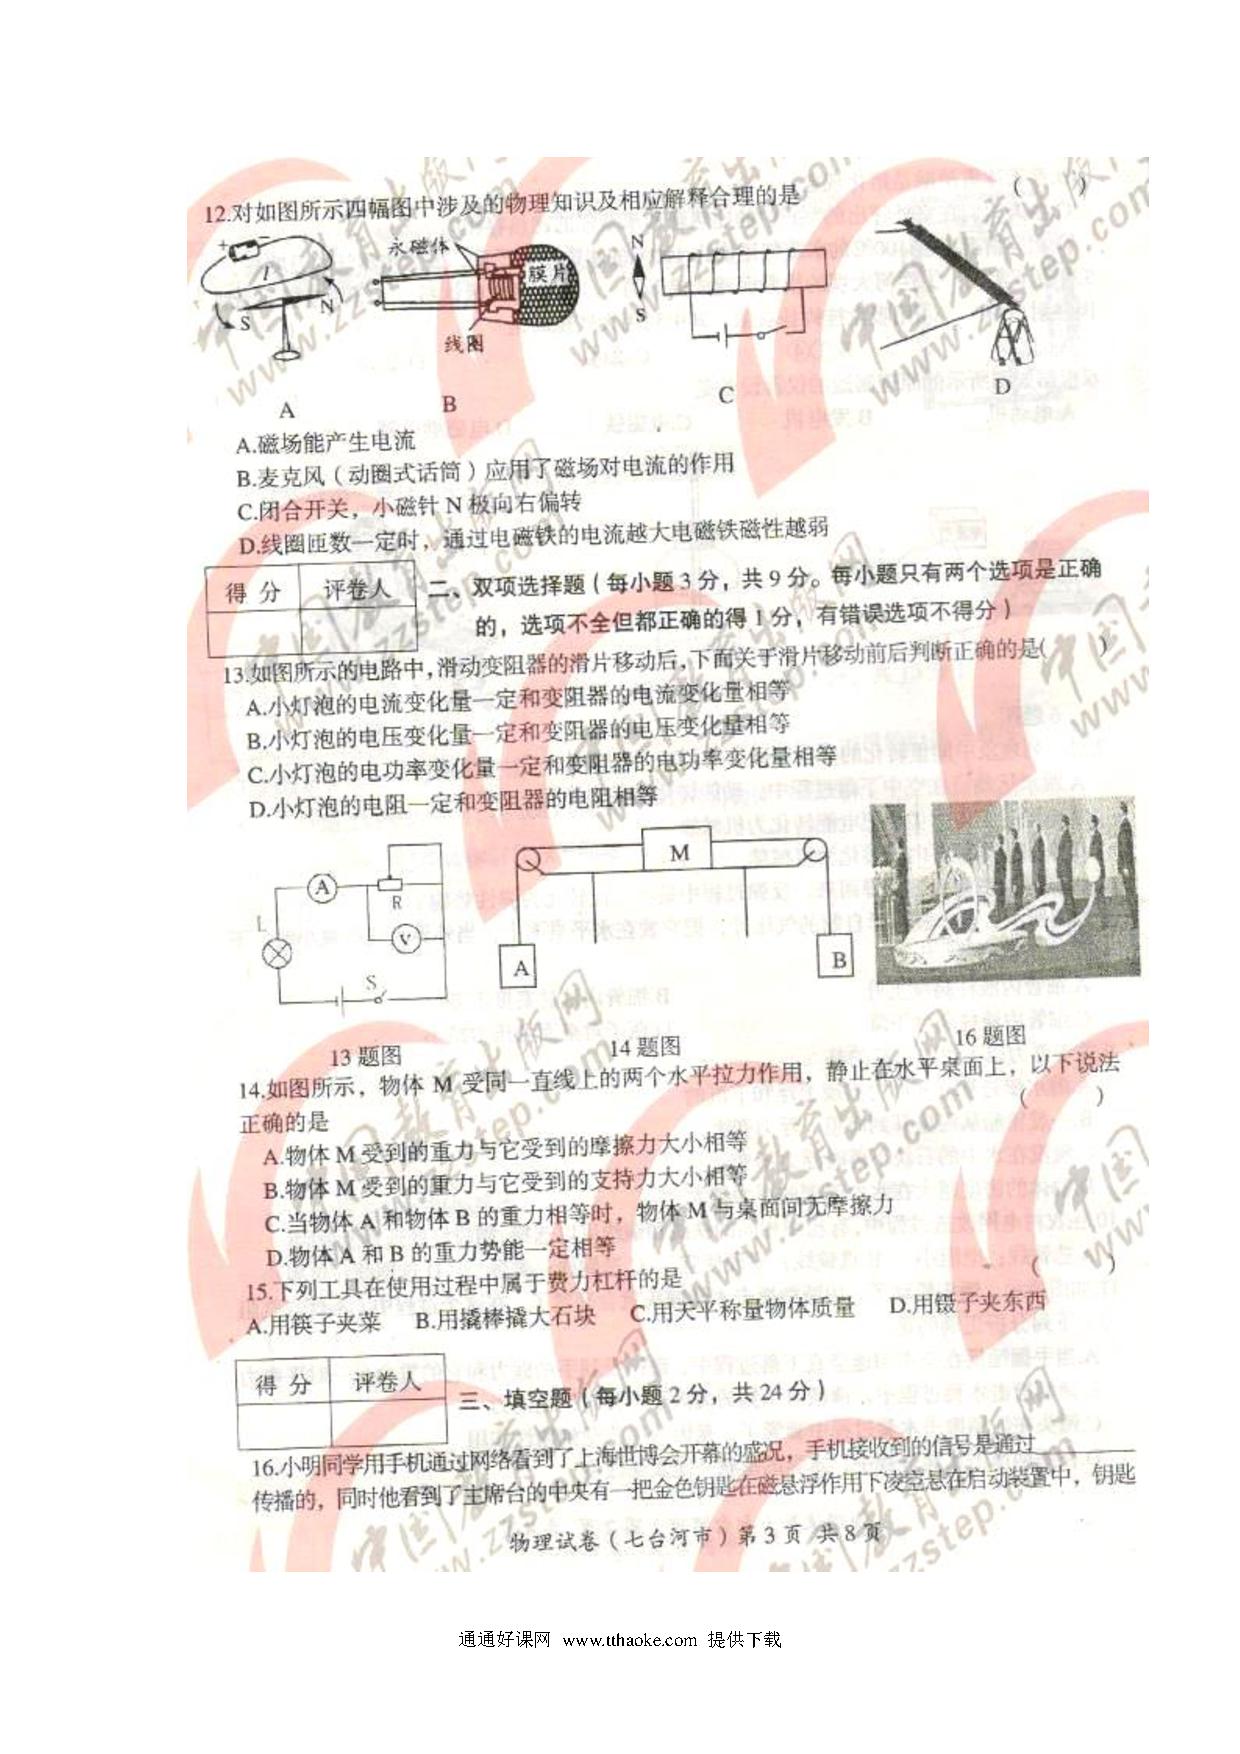 12.对如图所示四幅图中涉及的物理知识及相应解释合理的是 ( )
+ - I S N
永磁体 膜片 线圈
N S
A B C D
A.磁场能产生电流
B.麦克风(动圈式话筒)应用了磁场对电流的作用
C.闭合开关，小磁针 N 极向右偏转
D.线圈匝数一定时，通过电磁铁的电流越大电磁铁磁性越弱
得 分 评卷人
二、双项选择题(每小题 3 分，共 9 分。每小题只有两个选项是正确
的，选项不全但都正确的得 1 分，有错误选项不得分)
13.如图所示的电路中，滑动变阻器的滑片移动后，下面关于滑片移动前后判断正确的是( )
A.小灯泡的电流变化量一定和变阻器的电流变化量相等
B.小灯泡的电压变化量一定和变阻器的电压变化量相等
C.小灯泡的电功率变化量一定和变阻器的电功率变化量相等
D.小灯泡的电阻一定和变阻器的电阻相等
A R V L S
M A B
13 题图 14 题图 16 题图
14.如图所示，物体 M 受同一直线上的两个水平拉力作用，静止在水平桌面上，以下说法
正确的是 ( )
A.物体 M 受到的重力与它受到的摩擦力大小相等
B.物体 M 受到的重力与它受到的支持力大小相等
C.当物体 A 和物体 B 的重力相等时，物体 M 与桌面间无摩擦力
D.物体 A 和 B 的重力势能一定相等
15.下列工具在使用过程中属于费力杠杆的是 ( )
A.用筷子夹菜 B.用撬棒撬大石块 C.用天平称量物体质量 D.用镊子夹东西
得 分 评卷人
三、填空题(每小题 2 分，共 24 分)
16.小明同学用手机通过网络看到了上海世博会开幕的盛况，手机接收到的信号是通过
传播的，同时他看到了主席台的中央有一把金色钥匙在磁悬浮作用下凌空悬在启动装置中，钥匙
物理试卷(七台河市)第 3 页 共 8 页
通通好课网 www.tthaoke.com 提供下载
中国教育出版网
www.zzstep.com